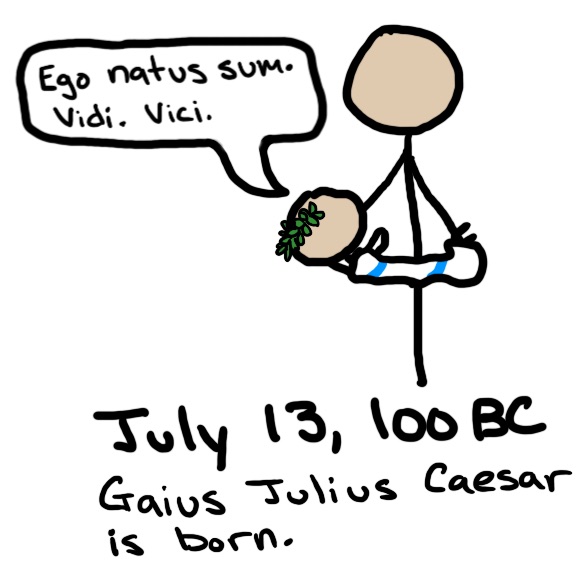 Ego natus sum.
Vidi. Vici.
July 13, 100 BC
Gaius Julius Caesar
is born.